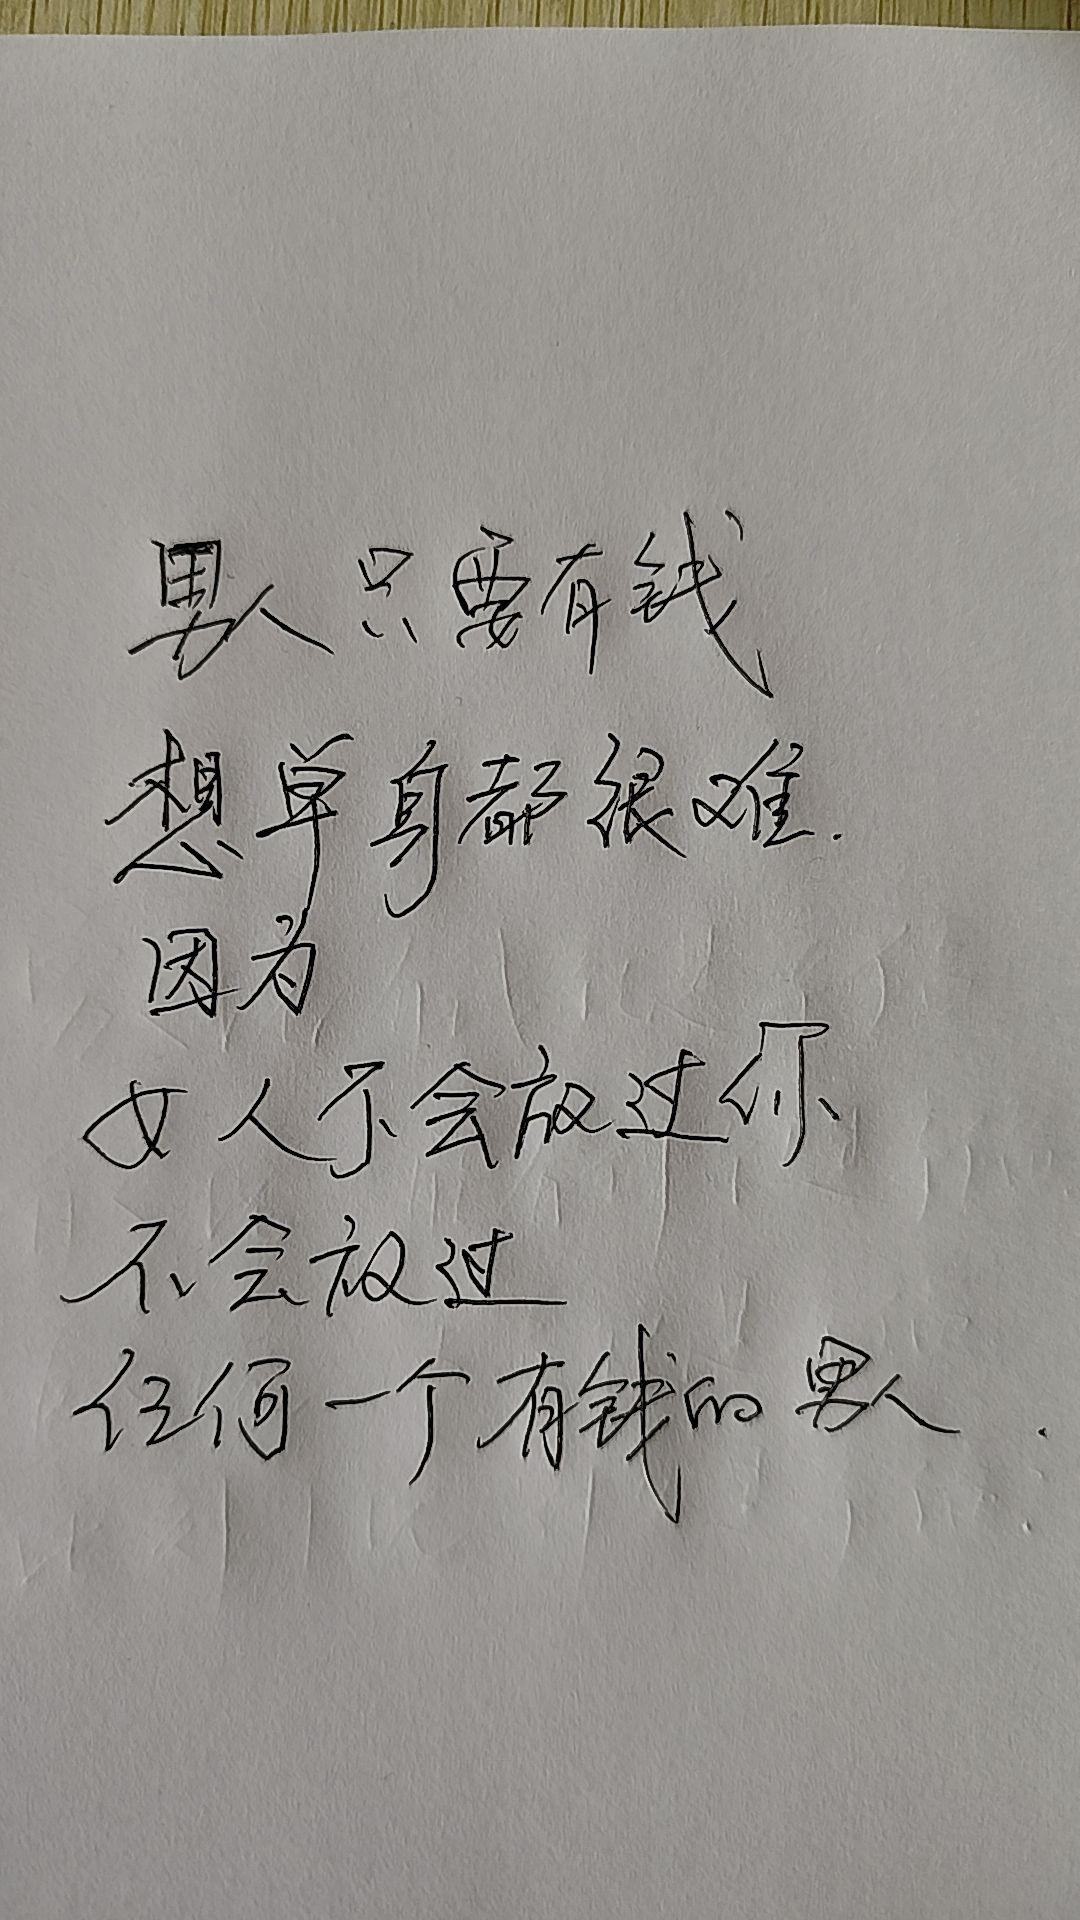 男人只要有钱
想单身都很难.
因为
女人不会放过你
不会放过
任何一个有钱的男人.